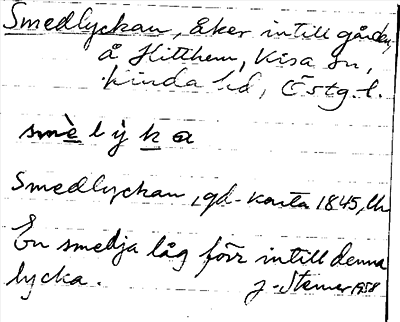 Smedlyckan, åker intill gården
å Hitthem, Kisa sn,
Kinda hd, Östg. l.
smè l y k a
Smedlyckan, gd-karta 1845, Uh
En smedja låg förr intill denna
lycka. J. Stener 1958